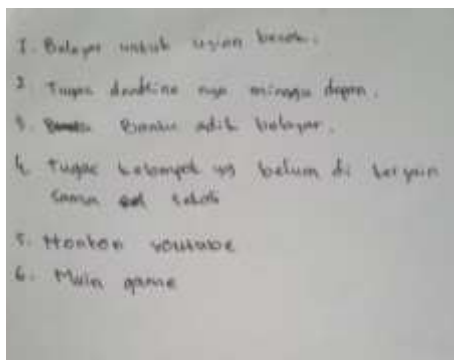 1. Belajar untuk ujian besok.
2. Tugas deadline nya minggu depan.
3. Bantu adik belajar.
4. Tugas kelompok yg belum di kerjain
sama
5. Nonton youtube
6. Main game